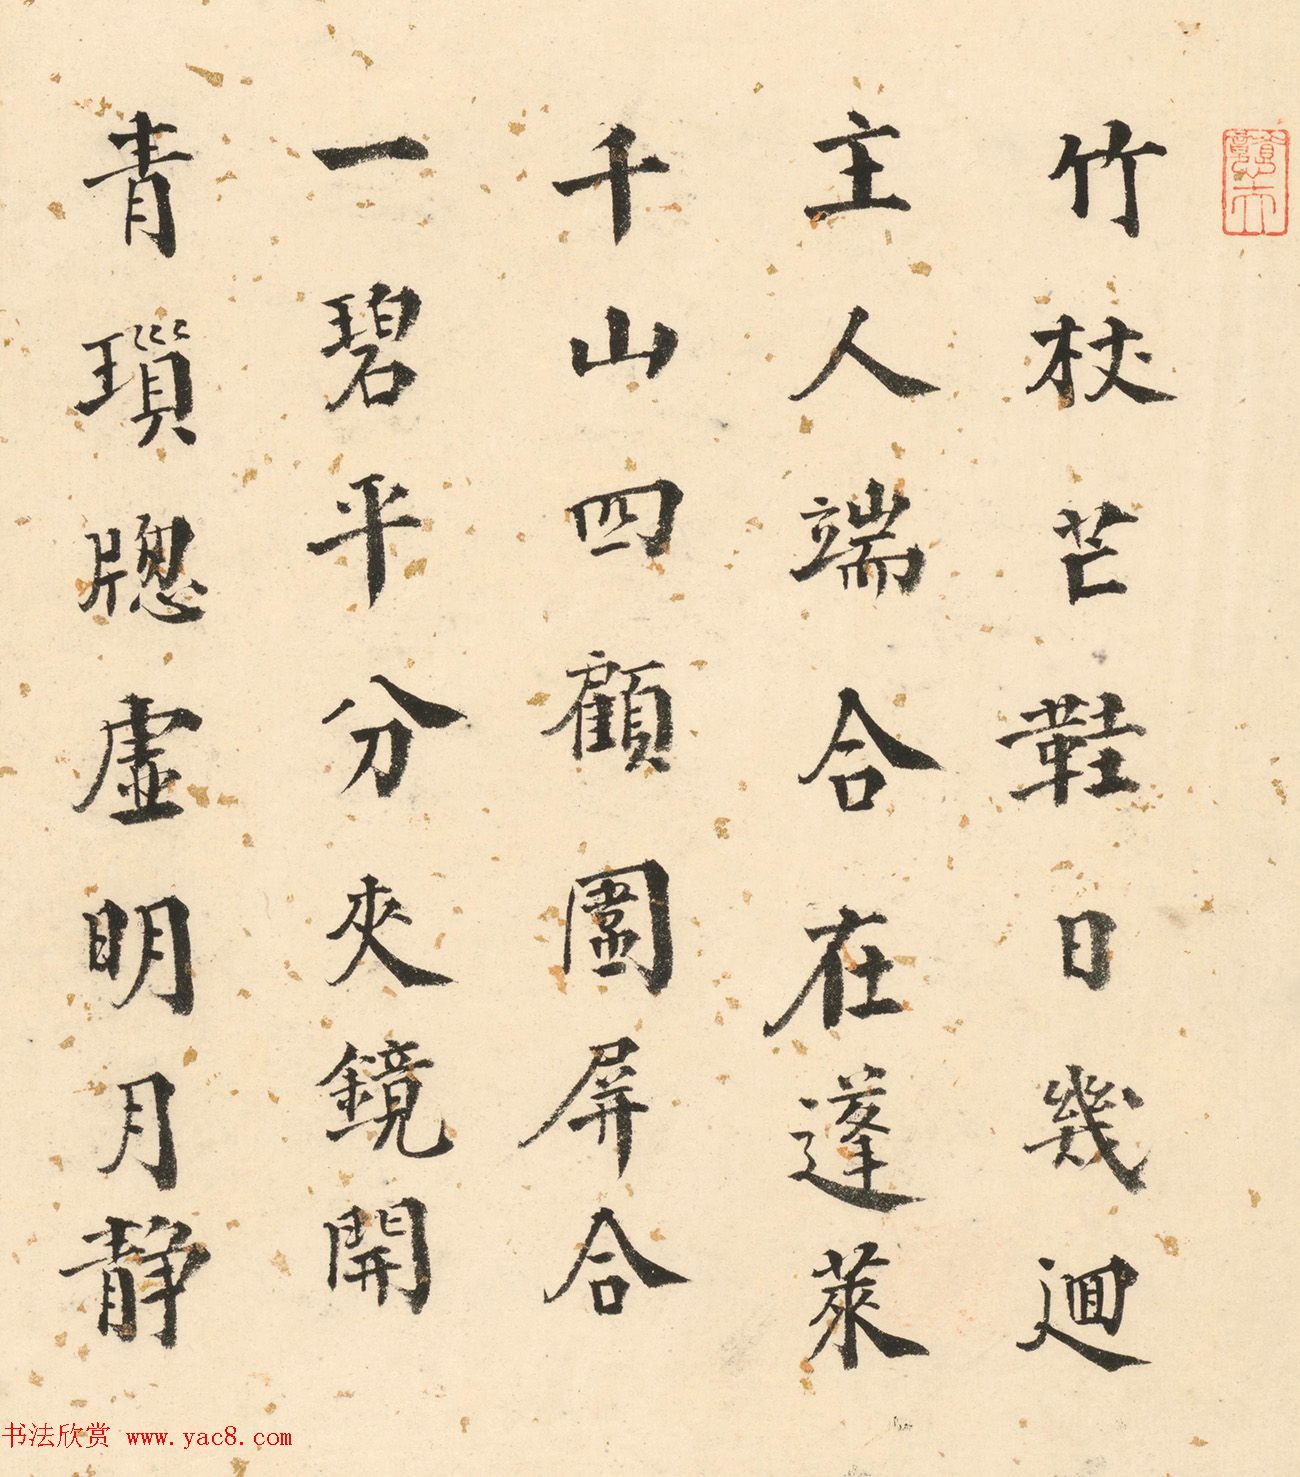 竹杖芒鞋日幾迴
主人端合在蓬萊
千山四顧圍屏合
一碧平分夾鏡開
青瑣牕虛明月靜
书法欣赏 www.yac8.com